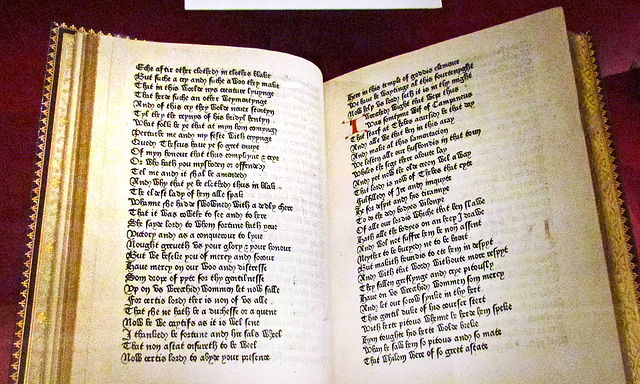 Eche aftir other clothed in clothis blake
But suche a cry and suche a Woo they make
That in this World nys creature lyuynge
That herde suche an other Weymentynge
And of this cry they Wolde neuer stentyn
Tyl they the reynys of his bridel hentyn
What folk be ye that at myn hom comynge
Perturbe me and my feste With cryynge
Quod Theseus haue ye so gret enuye
Of myn honour that thus complayne & crye
Or Who hath you mysboden or offended
Tel me and it shal be amended
And Why that ye be clothed thus in blak
The eldest lady of hem alle spak
Whanne she had swowned With a dedly chere
That it Was routhe to see and to here
She sayde lord to Whom fortune hath yeue
Victory and as a conquerour to lyue
Nought greueth vs your glory & your honour
But We beseke you of mercy and socour
Haue mercy on our Woo and distresse
Som drope of pyte for thy gentilnesse
Vp on vs Wrecchid Wommen let now falle
For certis lord ther is non of vs alle
That she ne hath be a duchesse or a quene
Now be We caytifs as it is Wel sene
I thanked be fortune and hir fals Wheel
That non astat ensureth to be Weel
Now certis lord to abyde your presence
Here in this temple of goddis clemence
We haue be Waytinge al this fourtenyght
Now help vs lord sith it is in thy might
I Wrecche Wight that Wepe thus
Was somtyme Wif of Campaneus
That starf at Thebes cursid be that day
And alle We that ben in this aray
And make al this lamentacion
We losten alle our husbondis in that toun
Whiles the sege there aboute lay
And yet now the olde creon Wel a Way
That lord is now of Thebes that cyte
Fulfilled of Ire and iniquyte
He for despit and his tirannye
To do the ded bodyes vilonye
Of alle our lordis Whiche that ben slawe
Hath alle the bodyes on an heep I drawe
And Wol not suffre hem be non assent
Neyther to be buryed ne to be brent
But maketh houndis to ete hem in despyt
And With that Word Without more respyt
They fallen gruflynge and crye pitously
Haue on vs Wrecchid Wommen som mercy
And let our sorow synke in thy hert
This gentil duke of his courser stert
With herte pitous Whenne he herde hem speke
Hym thought his herte Wolde breke
Whan he saw hem so pitous and so mate
That Whilom Were of so gret astate